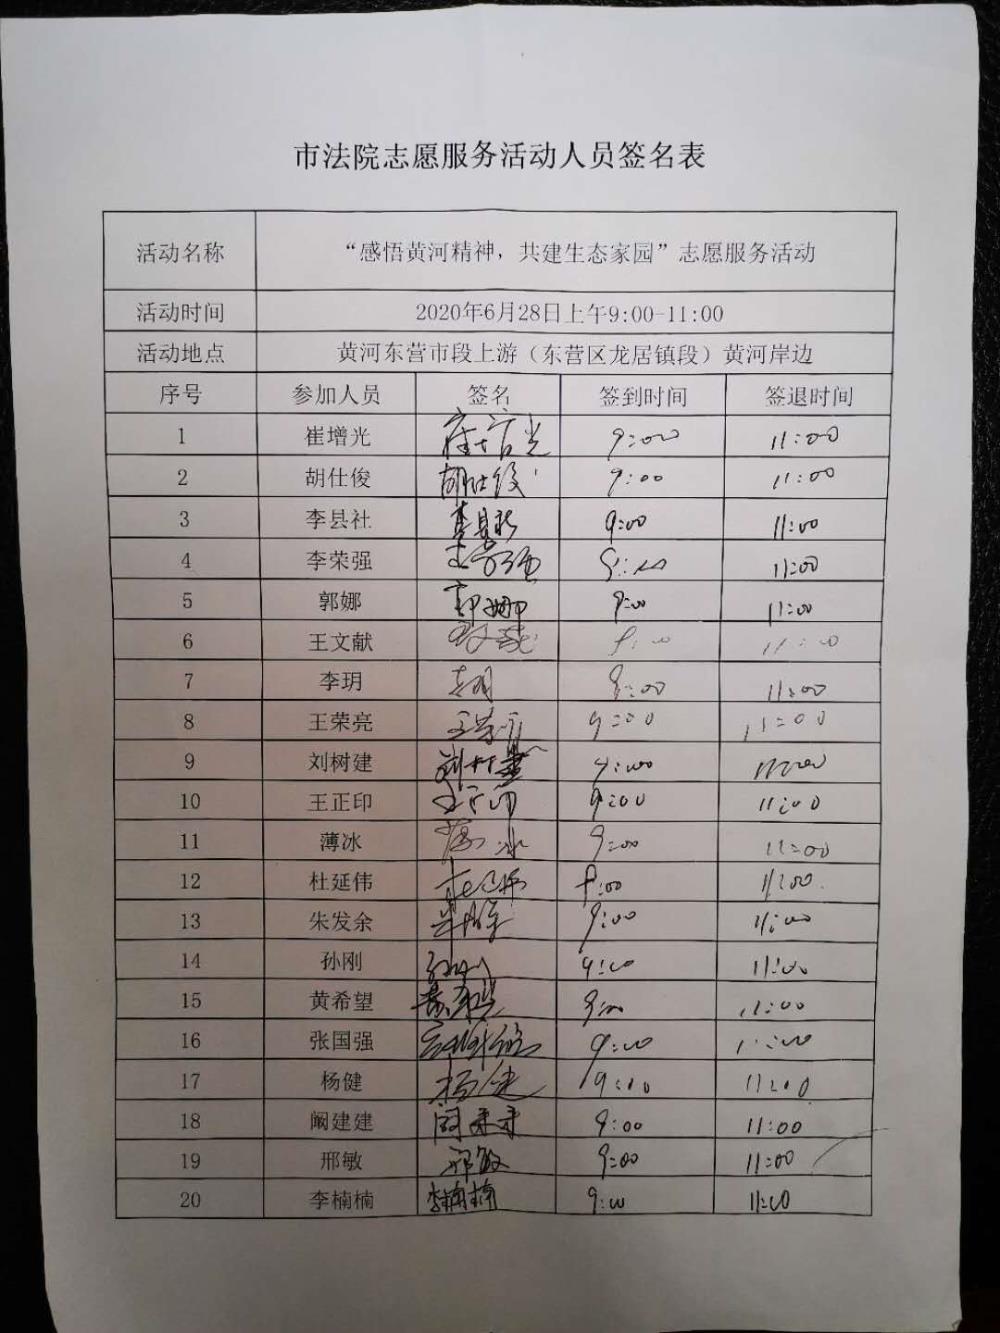 市法院志愿服务活动人员签名表
活动名称 “感悟黄河精神，共建生态家园”志愿服务活动
活动时间 2020年6月28日上午9:00-11:00
活动地点 黄河东营市段上游（东营区龙居镇段）黄河岸边
序号 参加人员 签名 签到时间 签退时间
1 崔增光 崔增光 9:00 11:00
2 胡仕俊 胡仕俊 9:00 11:00
3 李县社 李县社 9:00 11:00
4 李荣强 李荣强 9:00 11:00
5 郭娜 郭娜 9:00 11:00
6 王文献 王文献 9:00 11:00
7 李玥 李玥 9:00 11:00
8 王荣亮 王荣亮 9:00 11:00
9 刘树建 刘树建 9:00 11:00
10 王正印 王正印 9:00 11:00
11 薄冰 薄冰 9:00 11:00
12 杜延伟 杜延伟 9:00 11:00
13 朱发余 朱发余 9:00 11:00
14 孙刚 孙刚 9:00 11:00
15 黄希望 黄希望 9:00 11:00
16 张国强 张国强 9:00 11:00
17 杨健 杨健 9:00 11:00
18 阚建建 9:00 11:00
19 邢敏 邢敏 9:00 11:00
20 李楠楠 李楠楠 9:00 11:00